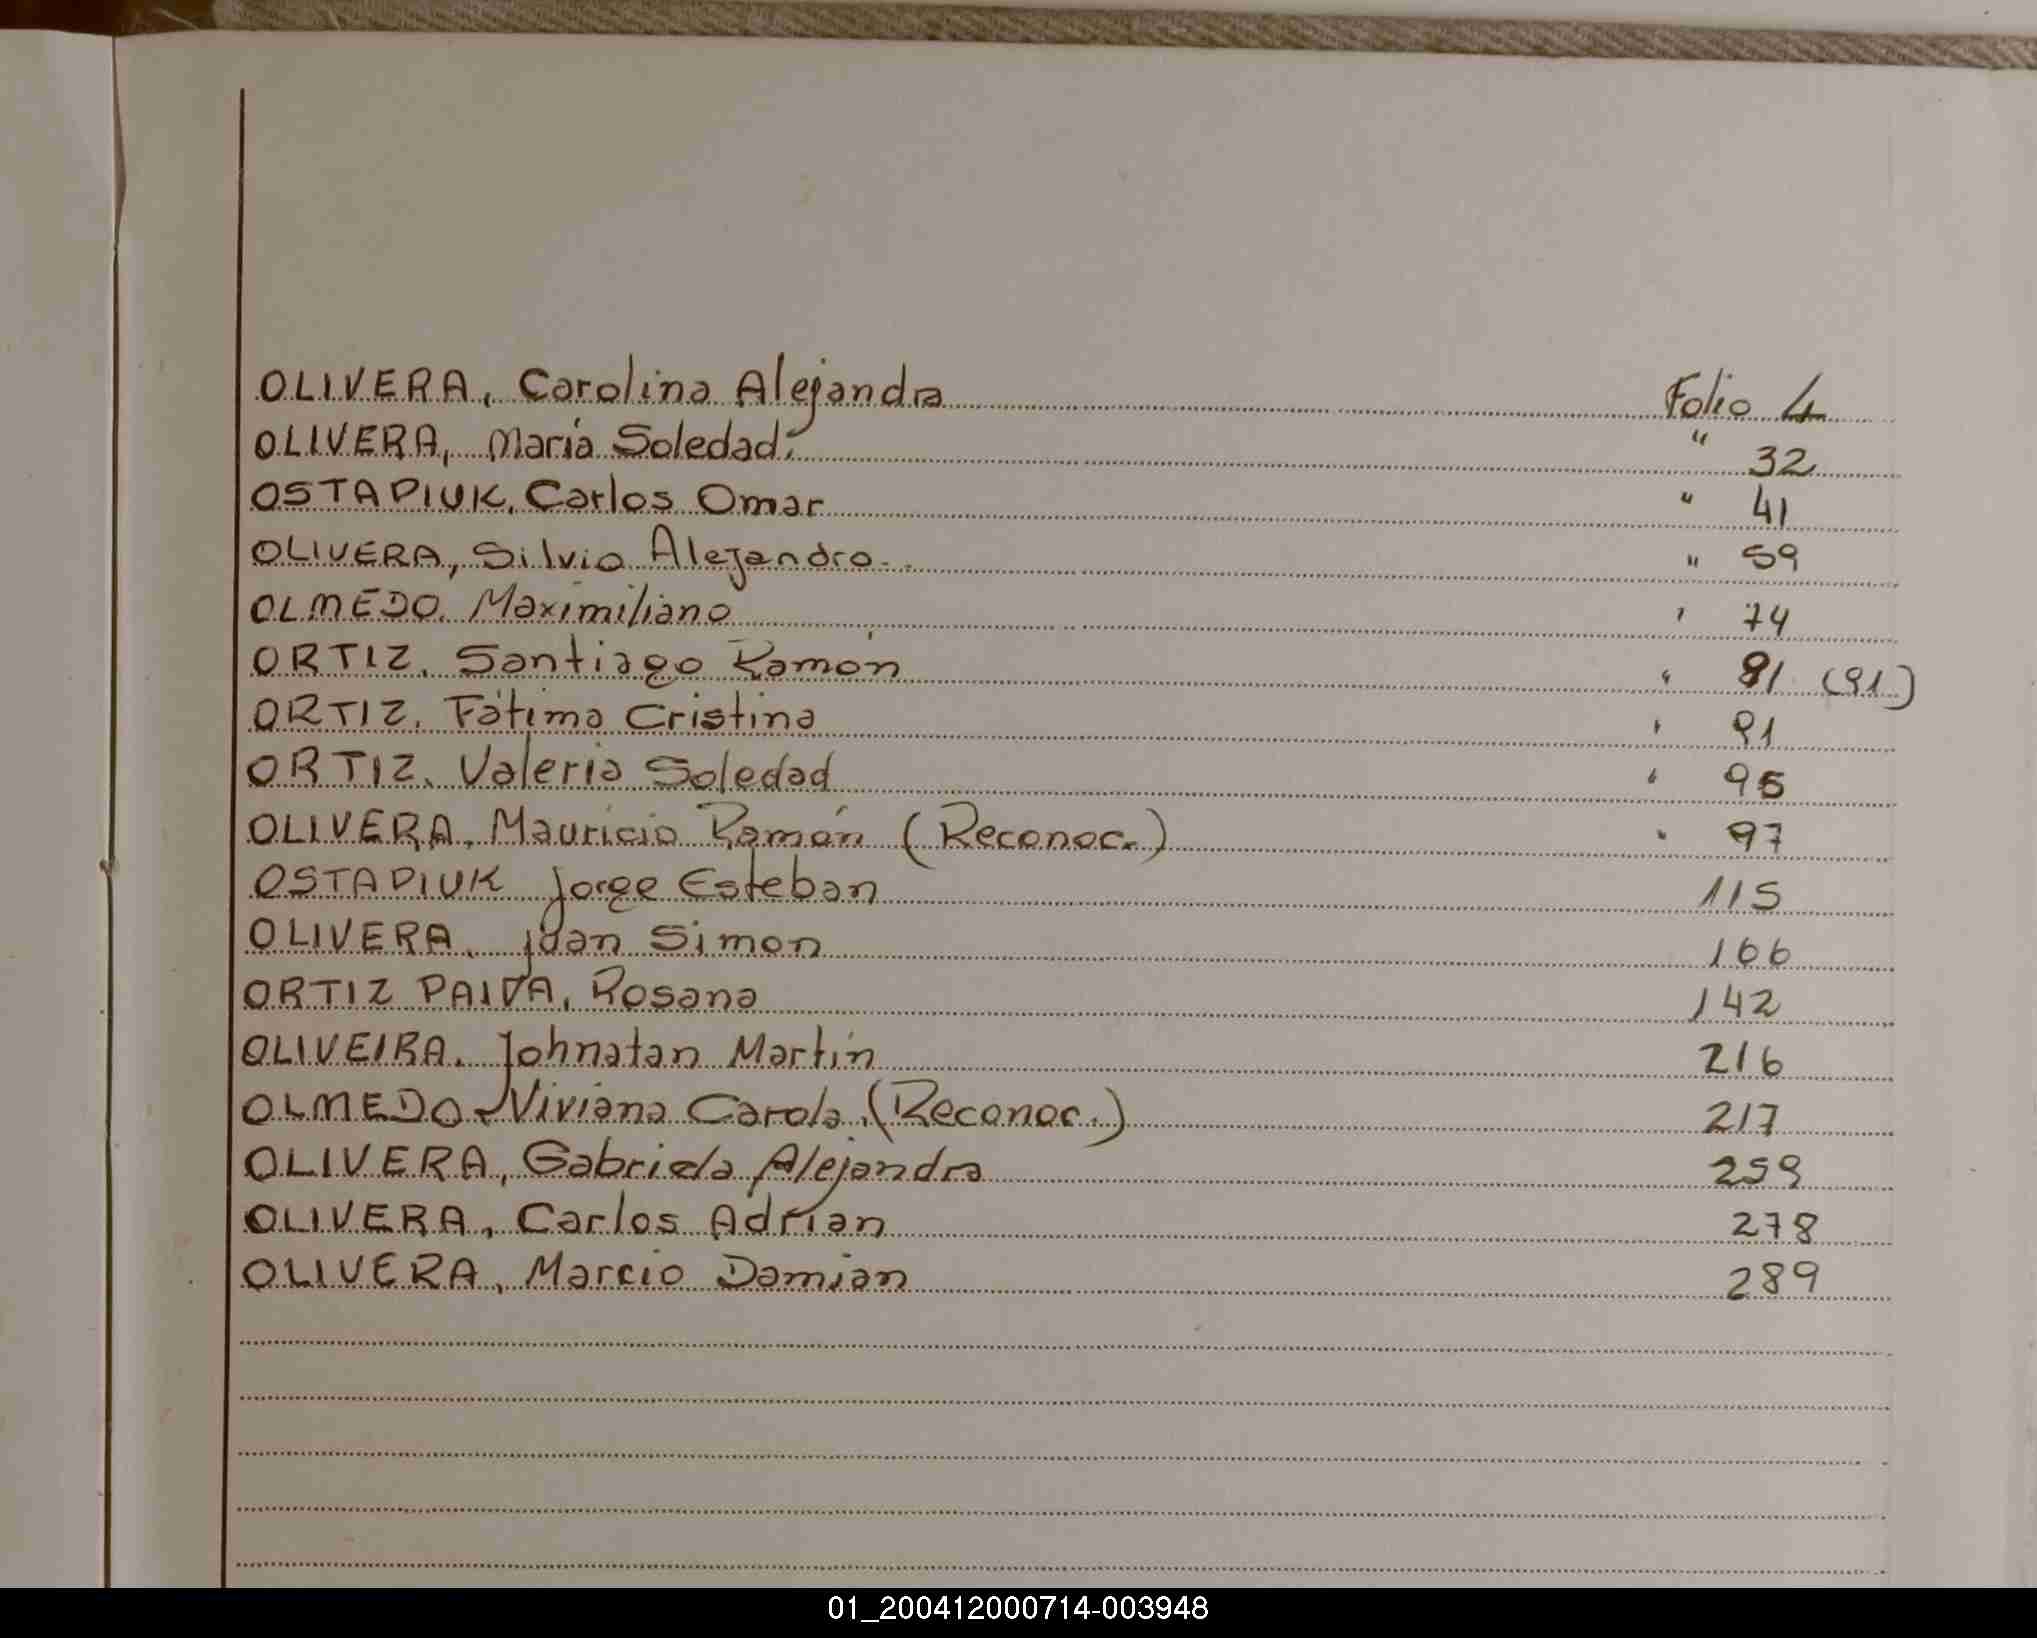 OLIVERA, Carolina Alejandra Folio 4
OLIVERA, María Soledad. " 32
OSTAPIUK, Carlos Omar " 41
OLIVERA, Silvio Alejandro.. " 59
OLMEDO. Maximiliano ' 74
ORTIZ. Santiago Ramón " 81 (91)
ORTIZ. Fátima Cristina ' 91
ORTIZ. Valeria Soledad ' 95
OLIVERA. Mauricio Ramón (Reconoc.) " 97
OSTAPIUK Jorge Esteban 115
OLIVERA. Juan Simon 166
ORTIZ PAIVA, Rosana 142
OLIVEIRA. Johnatan Martín 216
OLMEDO Viviana Carola (Reconoc.) 217
OLIVERA, Gabriela Alejandra 259
OLIVERA, Carlos Adrian 278
OLIVERA, Marcio Damian 289
01_200412000714-003948